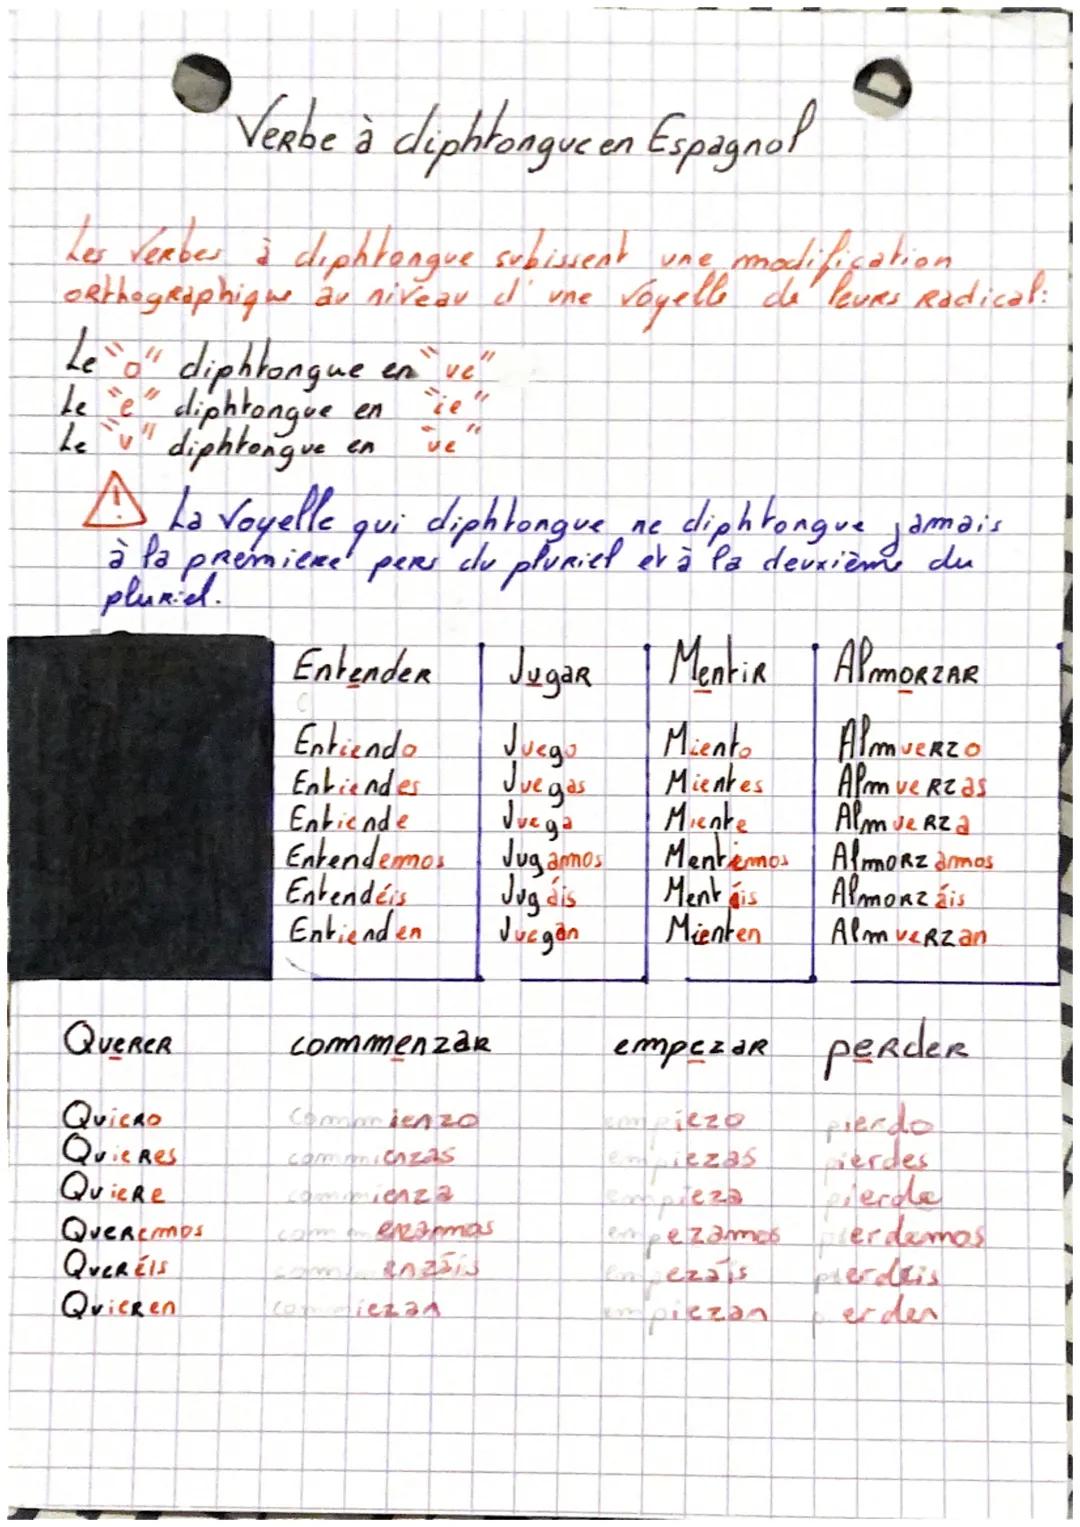 Verbe à diphtongue en Espagnol
Les Verbes à diphtongue subissent une modification
orthographique au niveau d'une voyelle de leurs Radical:
Le "o" diphtongue en "ue"
Le "e" diphtongue en "ie"
Le "u" diphtongue en "ue"
⚠ La voyelle qui diphtongue ne diphtongue jamais
à la première pers du pluriel et à la deuxième du
pluriel.
Entender Jugar Mentir Almorzar
Entiendo Juego Miento Almuerzo
Entiendes Juegas Mientes Almuerzas
Entiende Juega Miente Almuerza
Entendemos Jugamos Mentemos Almorzamos
Entendéis Jugáis Mentáis Almorzáis
Entienden Juegan Mienten Almuerzan
Querer commenzar empezar perder
Quiero commienzo empiezo pierdo
Quieres commienzas empiezas pierdes
Quiere commienza empieza pierde
Queremos empezamos
Queréis empezáis
Quieren commiezan empiezan